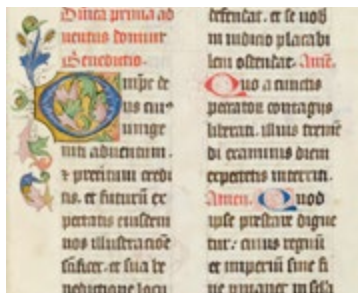 Dnica prima ad
uentus domini
Benedictio.
Omps de
us cui⁹
unige
niti aduentum.
⁊ preteritū credi
tis. et futurū ex
pectatis eiusdem
uos illustratiōe
sāctificet. et sua be
nedictione locu
defendat. et se uob̄
in iudicio placabi
lem ostendat. Amē.
Quo a cunctis
peccatorum contagiis
liberati. illius tremē
di examinis diem
expectetis interriti.
Amen. Quod
ipse prestare digne
tur. cuius regnū
et imperiū sine fi
ne permanet in secula